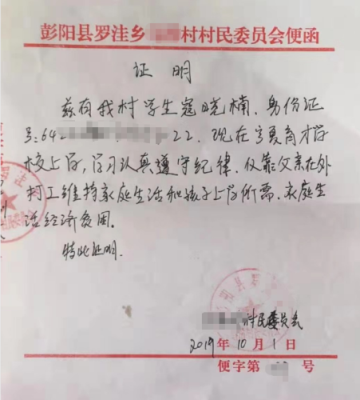 彭阳县罗洼乡 村村民委员会便函
证明
兹有我村学生寇晓楠,身份证
号:642 22,现在宁夏育才学
校上学,学习认真遵守纪律,仅靠父亲在外
打工维持家庭生活和孩子上学所需,家庭生
活经济费用.
特此证明.
村民委员会
2019年10月1日
便字第 号